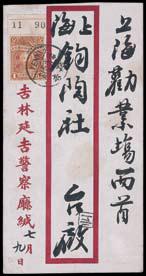 11 90
上海勸業場西首
上海鈞陶社 台啟
吉林延吉警察廳緘
七月九日